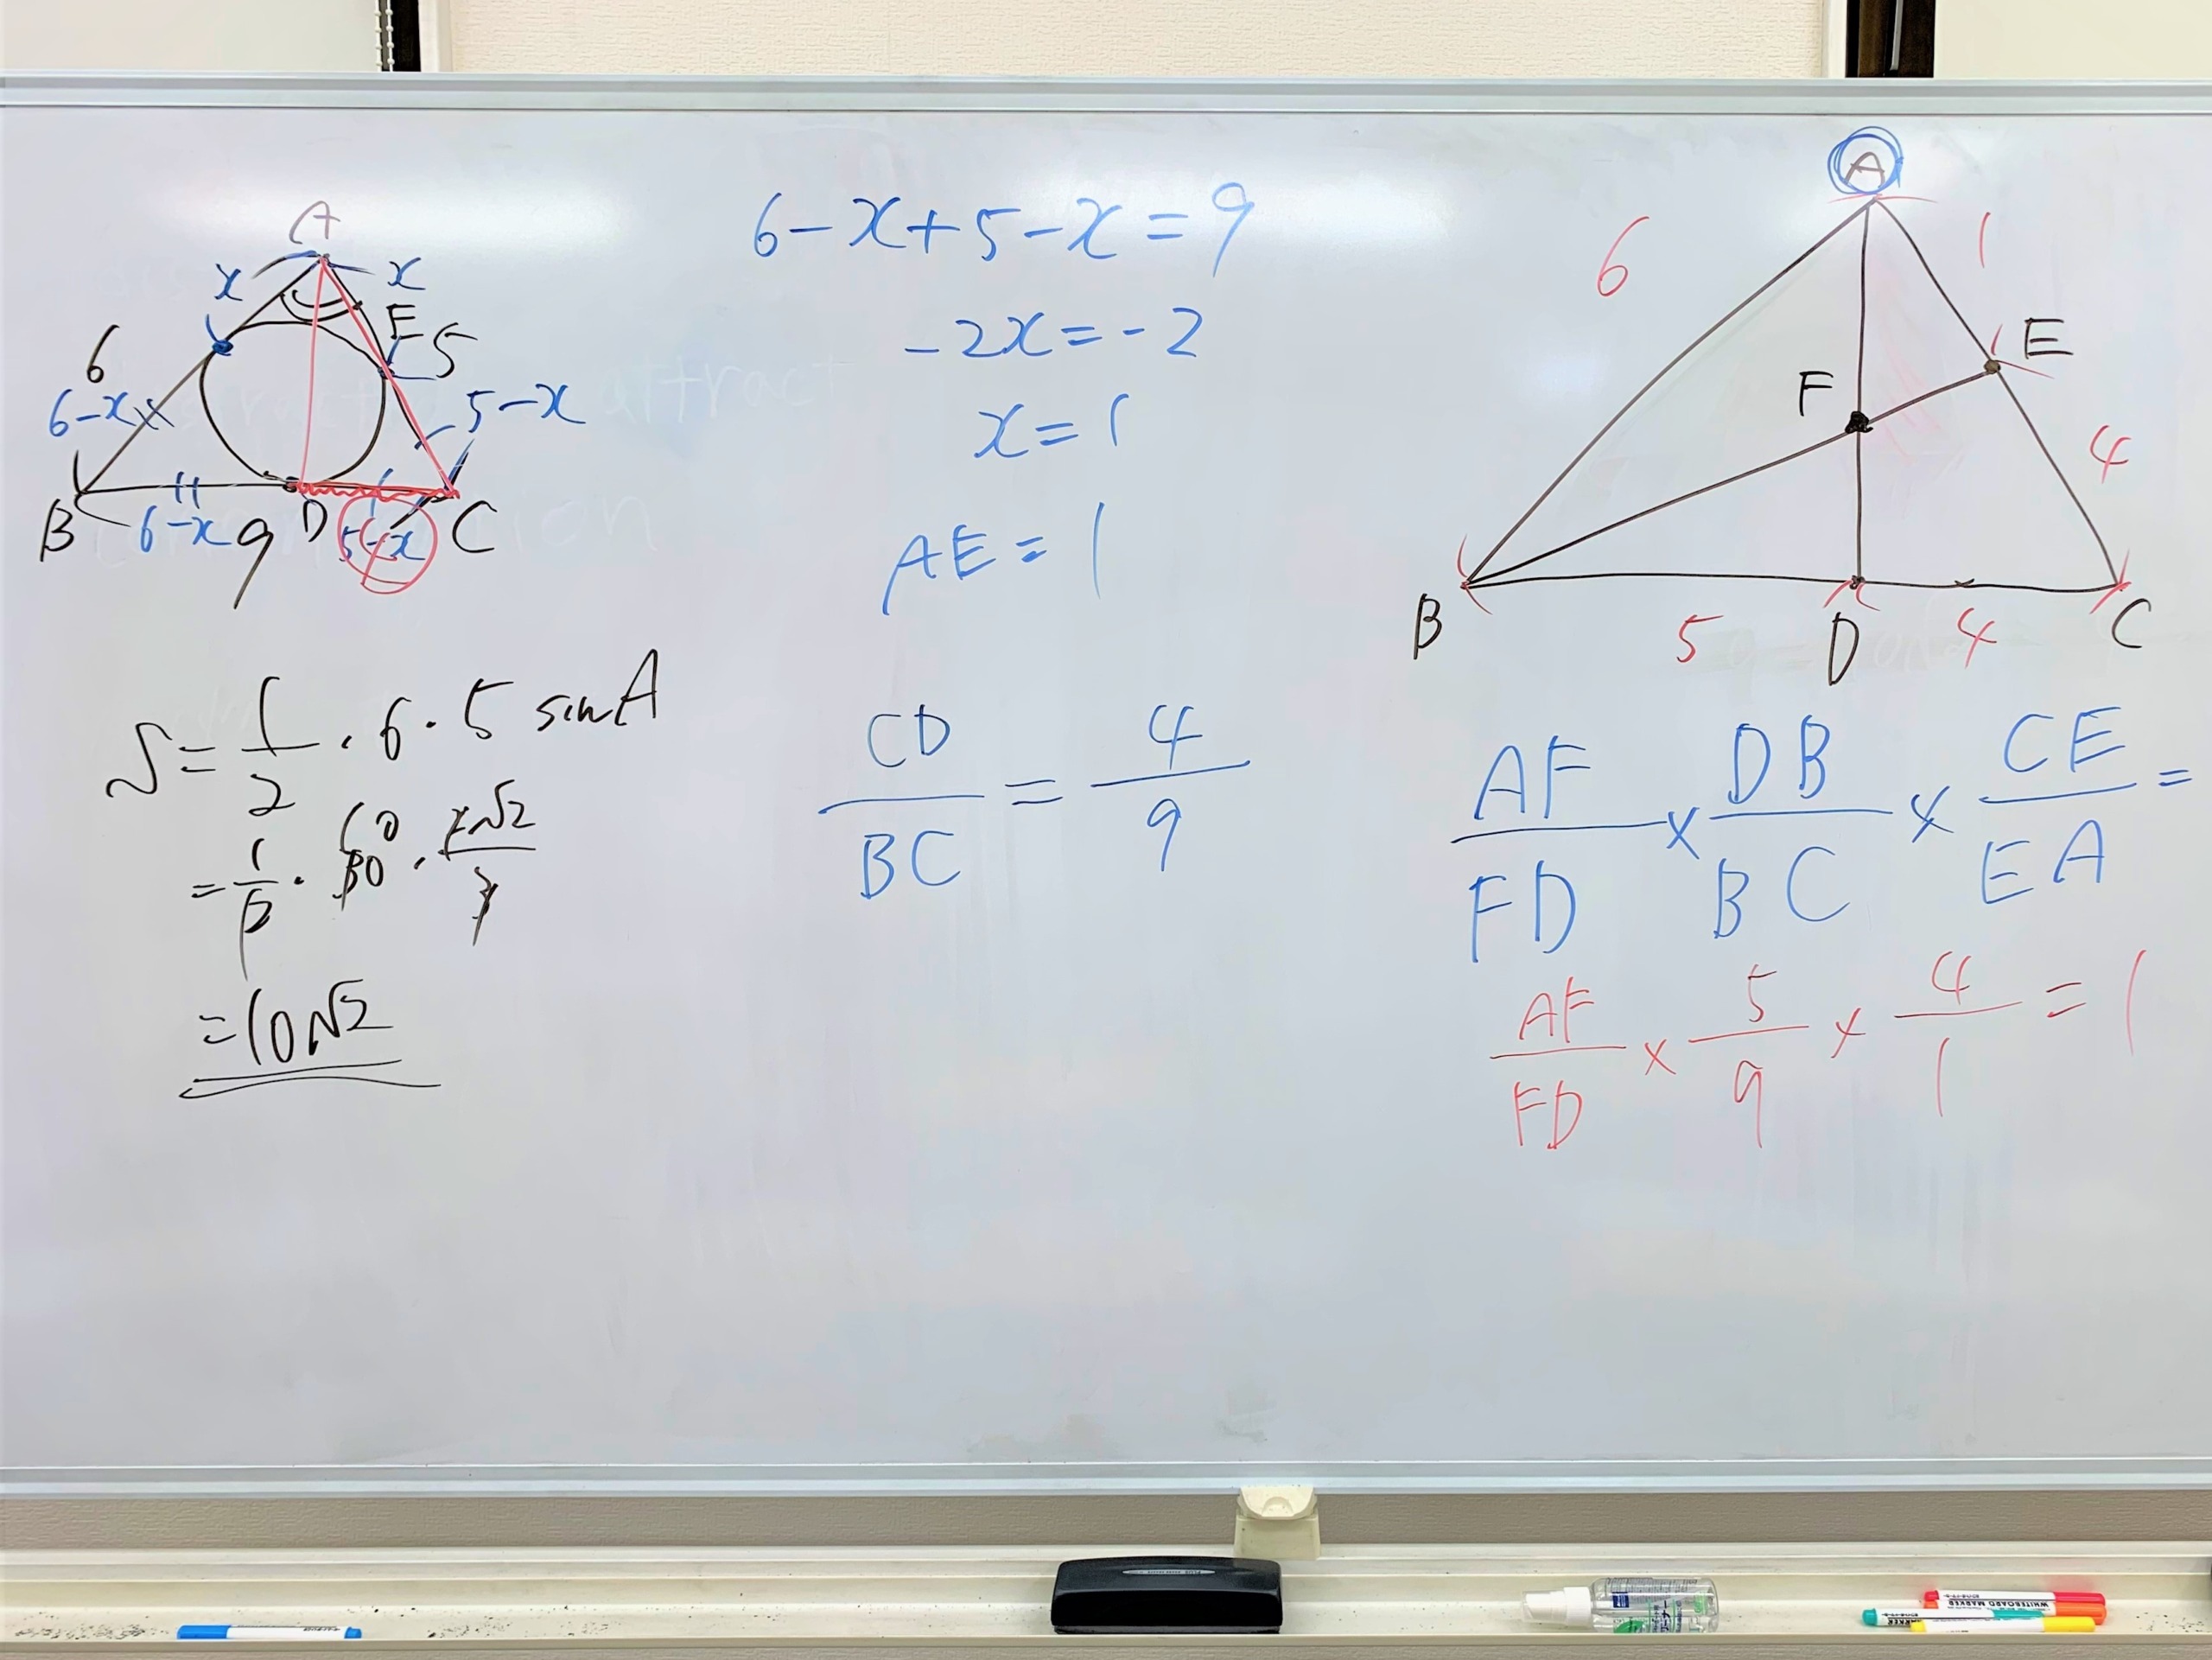 A
x
x
E
6
5
6-x
5-x
B
6-x
9
D
5-x
C
S = 1/2 · 6 · 5 sinA
= 10√2
6-x+5-x=9
-2x=-2
x=1
AE=1
CD/BC = 4/9
A
6
1
E
F
4
B
5
D
4
C
AF/FD × DB/BC × CE/EA =
AF/FD × 5/9 × 4/1 = 1
WHITEBOARD MARKER